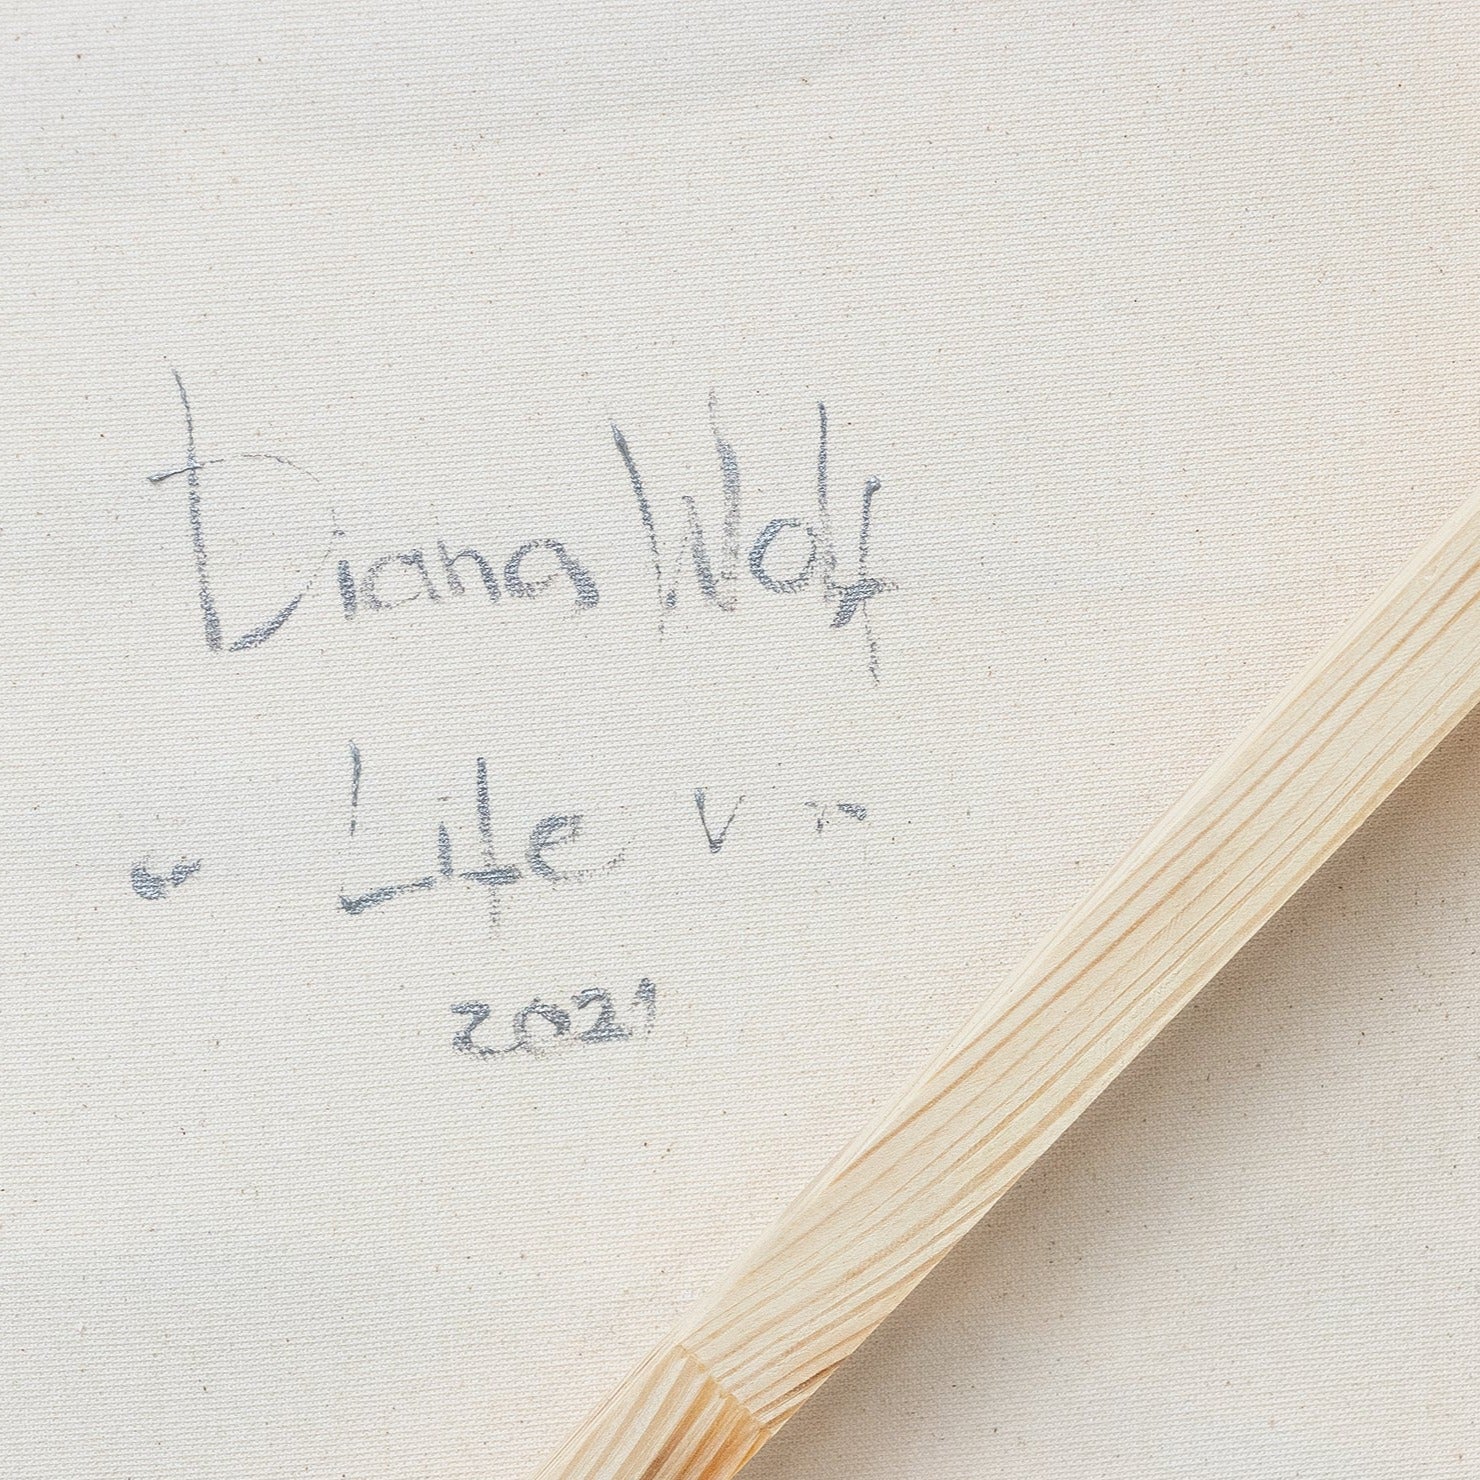 Diana Wolf
" Life V "
2021